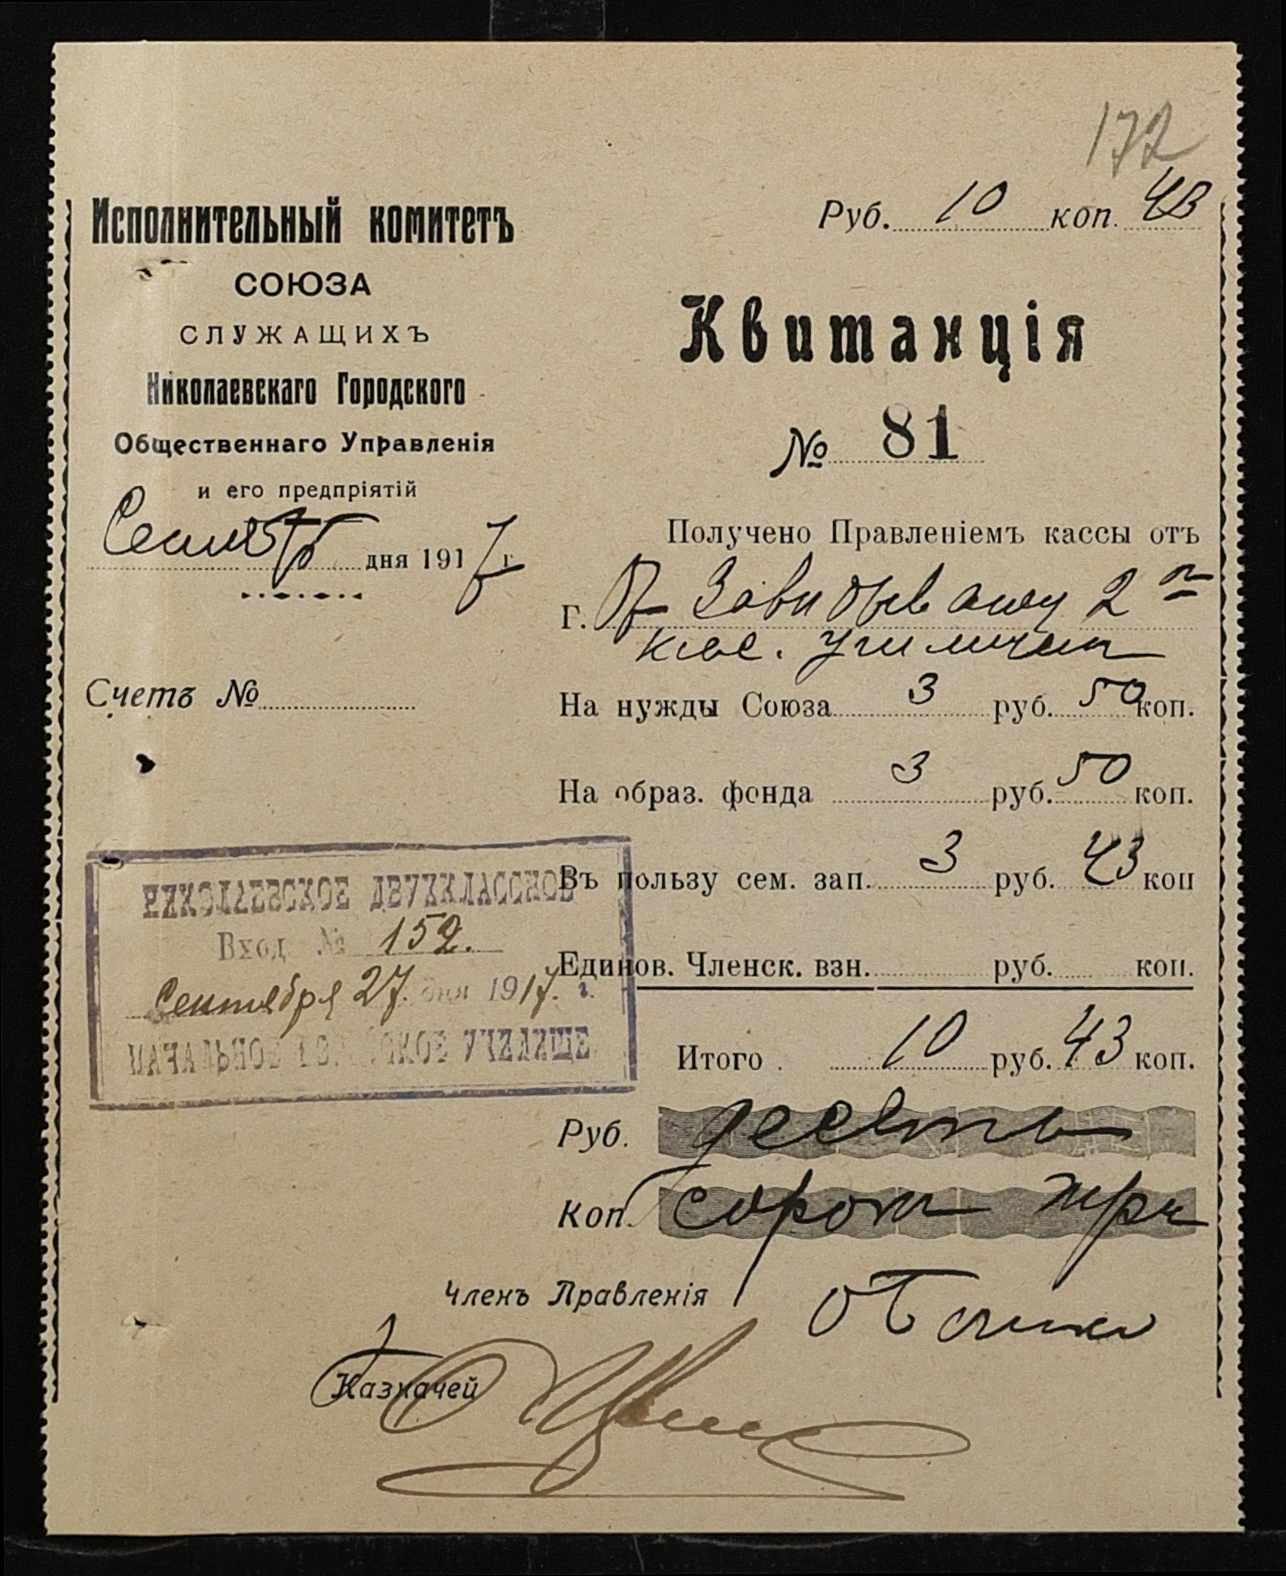 172
Исполнительный комитетъ
СОЮЗА
СЛУЖАЩИХЪ
Николаевскаго Городского
Общественнаго Управленія
и его предпріятій
дня 1917 г.
Счетъ №
Руб. 10 коп. 43
Квитанція
№ 81
Получено Правленіемъ кассы отъ
Г. 2
На нужды Союза 3 руб. 50 коп.
На образ. фонда 3 руб. 50 коп.
Въ пользу сем. зап. 3 руб. 43 коп
Единов. Членск. взн. руб. коп.
Итого . 10 руб. 43 коп.
Руб. десять
Коп. сорок три
Членъ Правленія
Казначей
НИКОЛАЕВСКОЕ ДВУХКЛАССНОЕ
Вход № 152.
Сентября 27. дня 1917. г.
НАЧАЛЬНОЕ ГОРОДСКОЕ УЧИЛИЩЕ